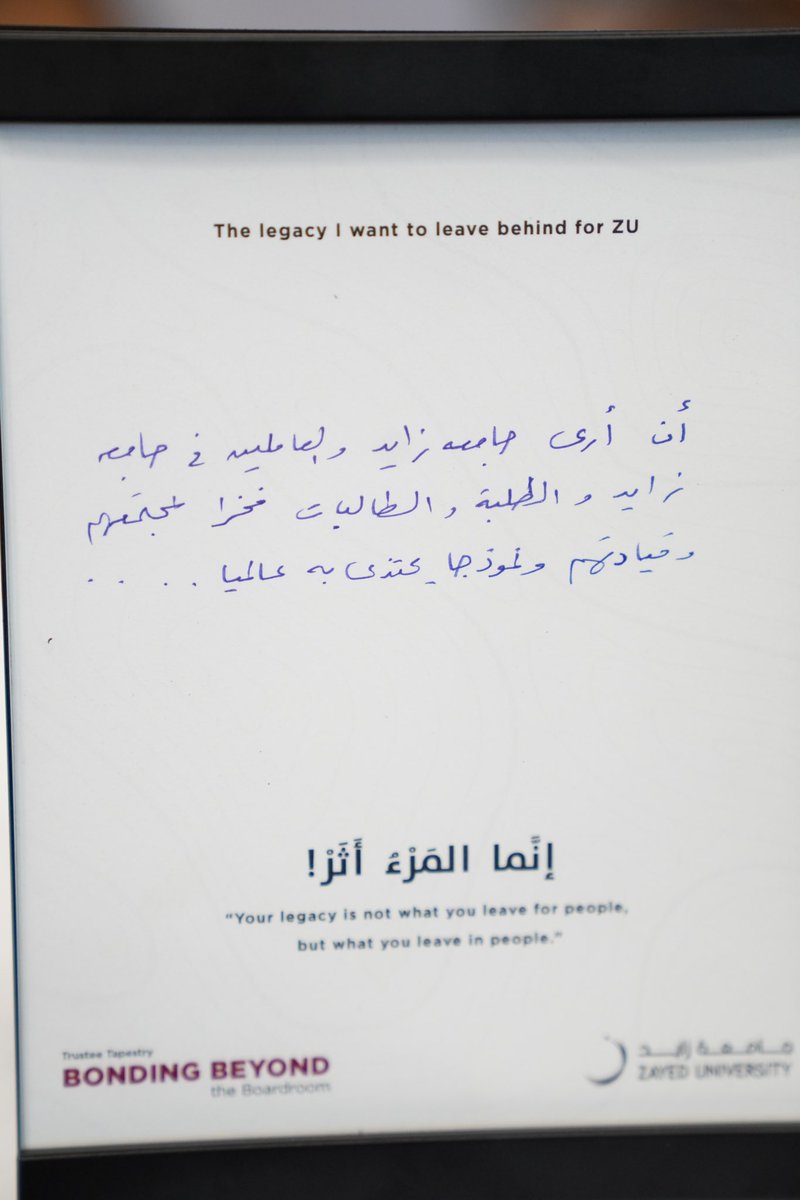 The legacy I want to leave behind for ZU
أن أرى جامعه زايد والعاملين في جامعه
زايد والطلبة والطالبات فخرا لمجتمعهم
وقيادتهم ونموذجا يحتذى به عالميا . . . .
إنَّما المَرْءُ أَثَرْ!
“Your legacy is not what you leave for people,
but what you leave in people.”
Trustee Tapestry
BONDING BEYOND
the Boardroom
جامعة زايد
ZAYED UNIVERSITY